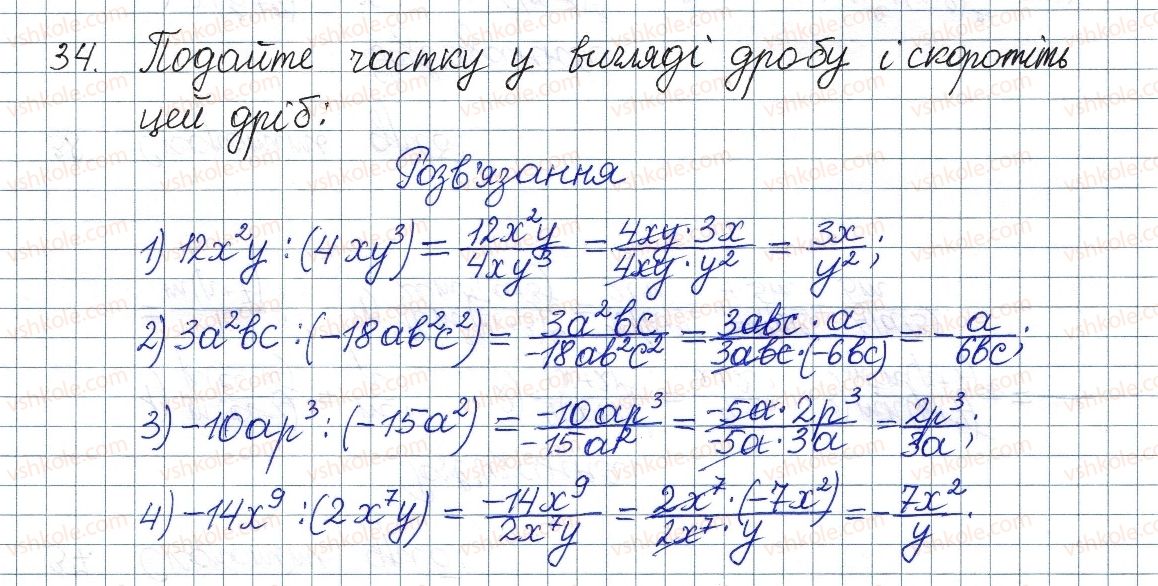 34. Подайте частку у вигляді дробу і скоротіть
цей дріб:
Розв'язання
1) 12x²y : (4xy³) = 12x²y/4xy³ = 4xy·3x/4xy·y² = 3x/y²;
2) 3a²bc : (-18ab²c²) = 3a²bc/-18ab²c² = 3abc·a/3abc·(-6bc) = -a/6bc;
3) -10ap³ : (-15a²) = -10ap³/-15a² = -5a·2p³/-5a·3a = 2p³/3a;
4) -14x⁹ : (2x⁷y) = -14x⁹/2x⁷y = 2x⁷·(-7x²)/2x⁷·y = -7x²/y.